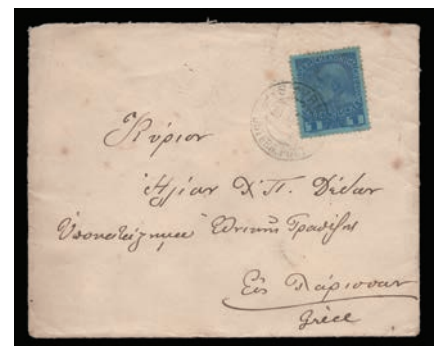 Κύριον
Ἠλίαν Χ΄Π. Δέδαν
Ὑποκατάστημα Ἐθνικῆς Τραπέζης
Εἰς Λάρισσαν
Grèce